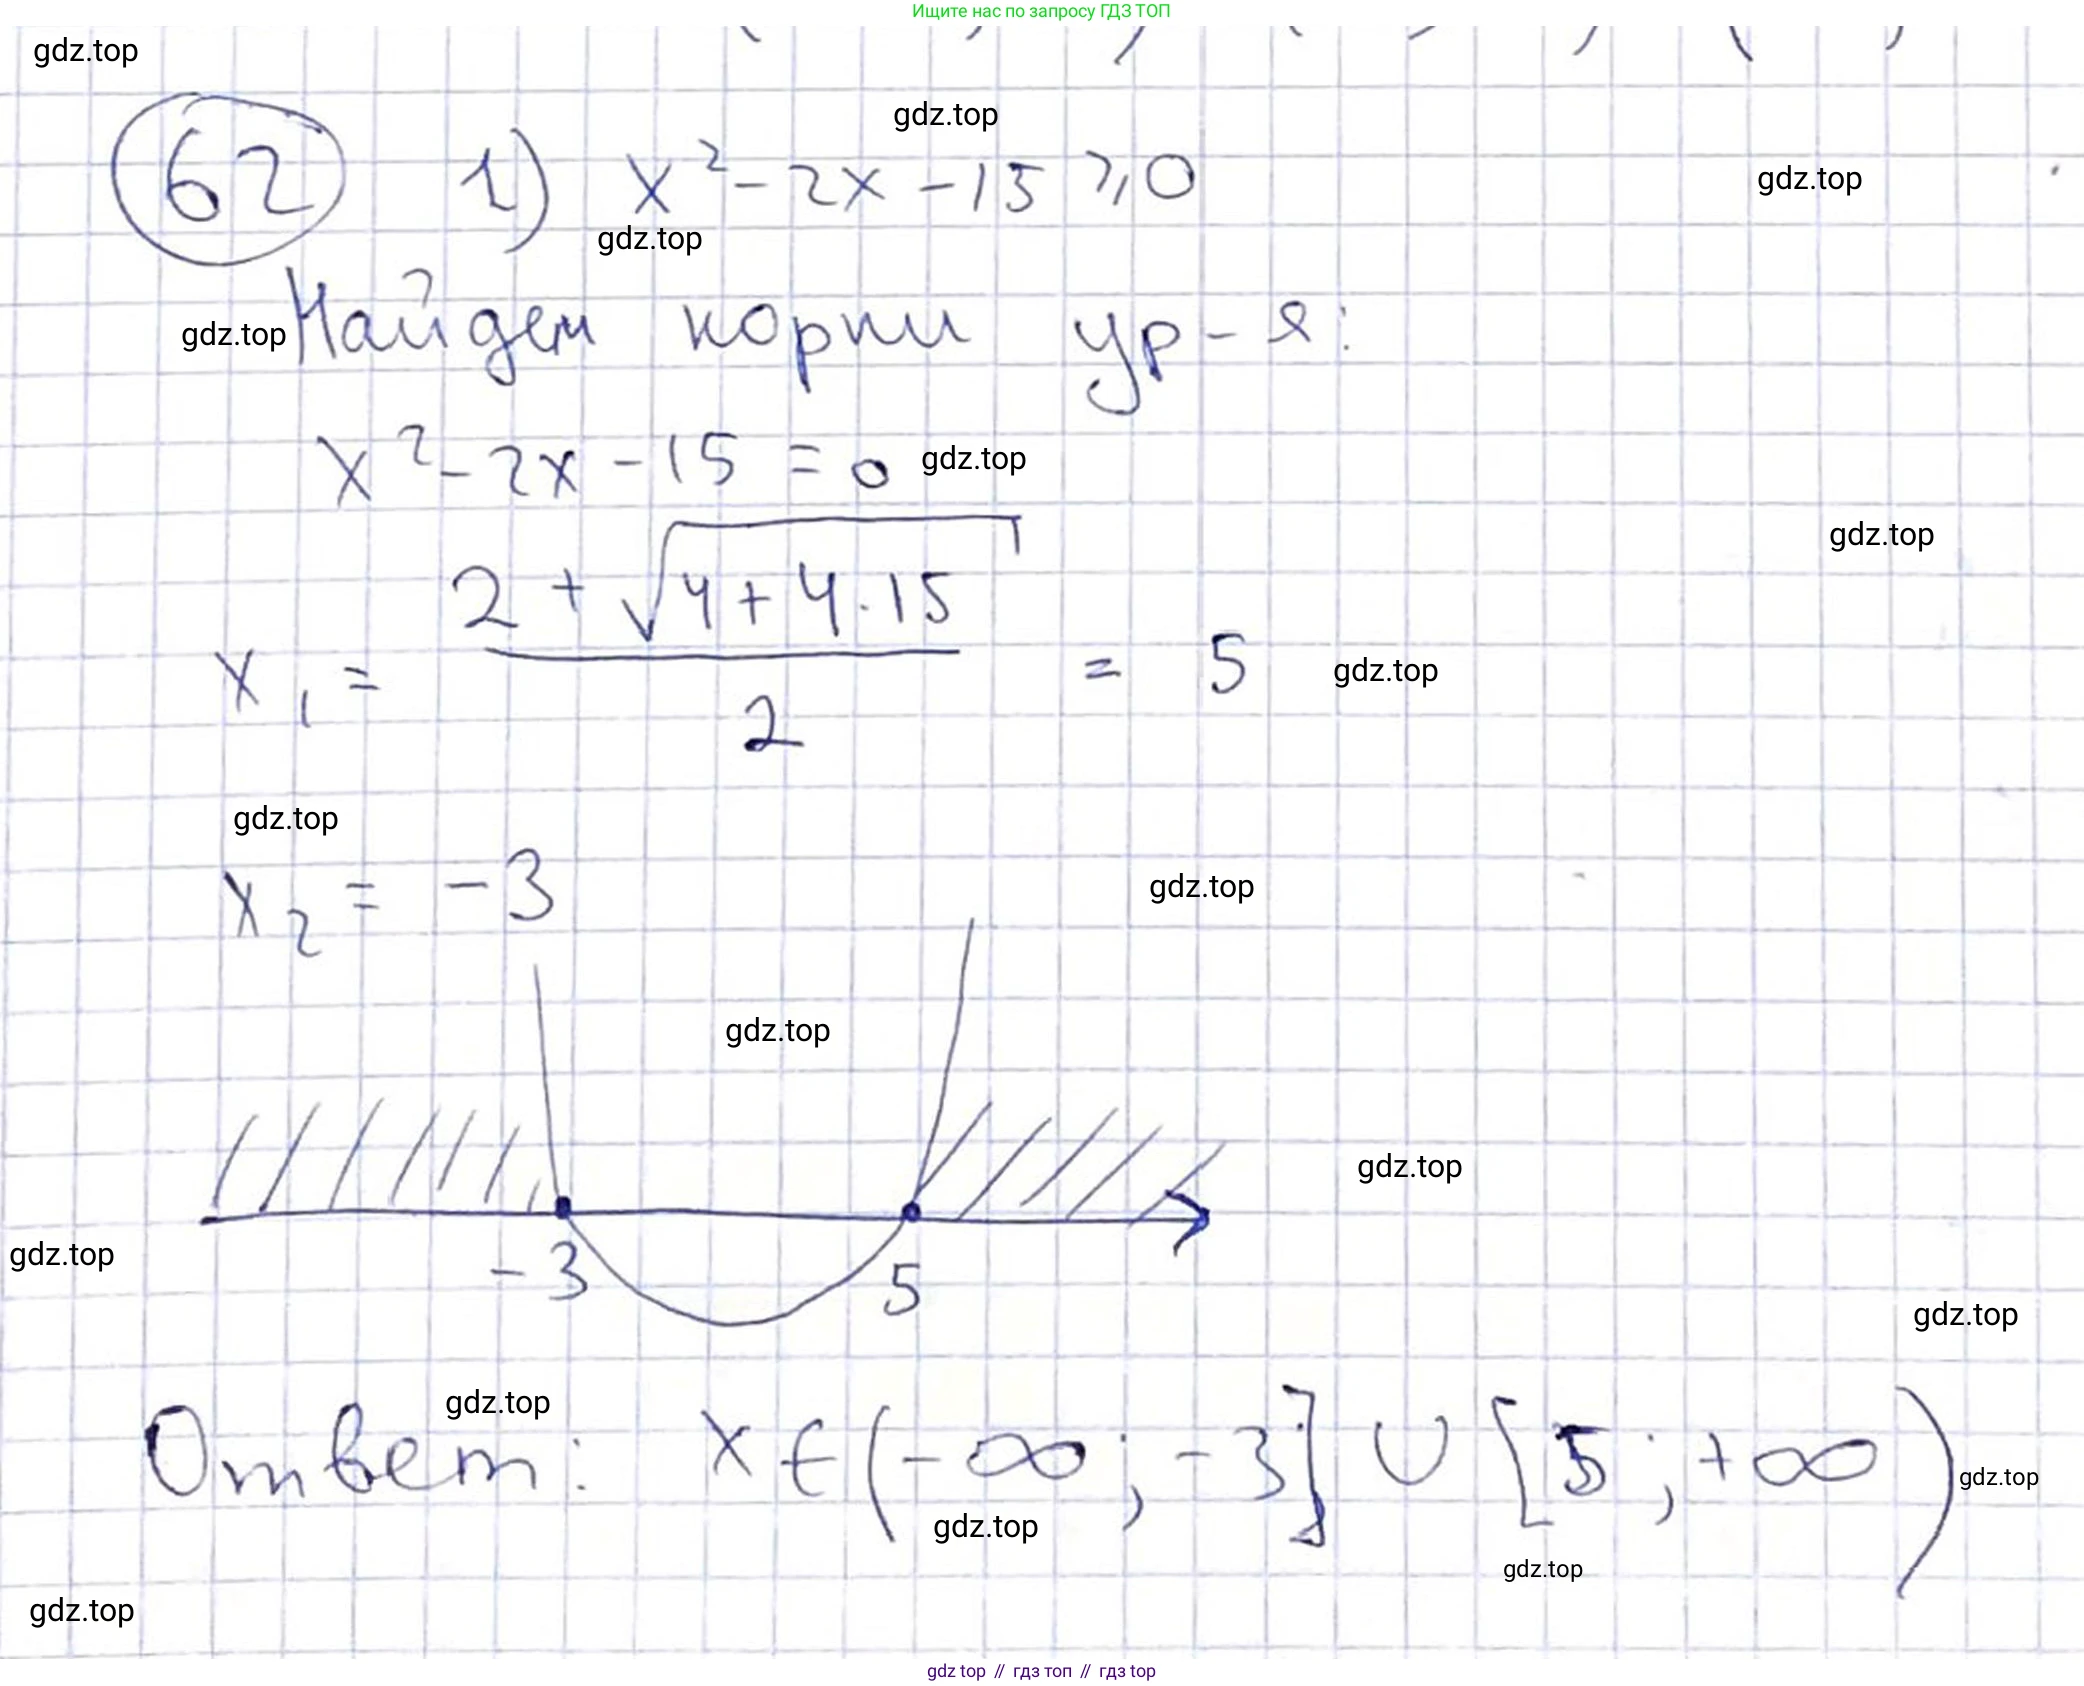 Ищите нас по запросу ГДЗ ТОП
gdz.top
gdz.top
62 1) x² - 2x - 15 ⩾ 0
gdz.top
gdz.top
gdz.top Найдем корни ур-я:
x² - 2x - 15 = 0 gdz.top
gdz.top
x₁ = (2 + √(4 + 4·15)) / 2 = 5 gdz.top
gdz.top
gdz.top
x₂ = -3
gdz.top
gdz.top
gdz.top
-3 5
gdz.top
gdz.top
Ответ: x ∈ (-∞; -3] ∪ [5; +∞) gdz.top
gdz.top
gdz.top
gdz.top
gdz top // гдз топ // гдз top